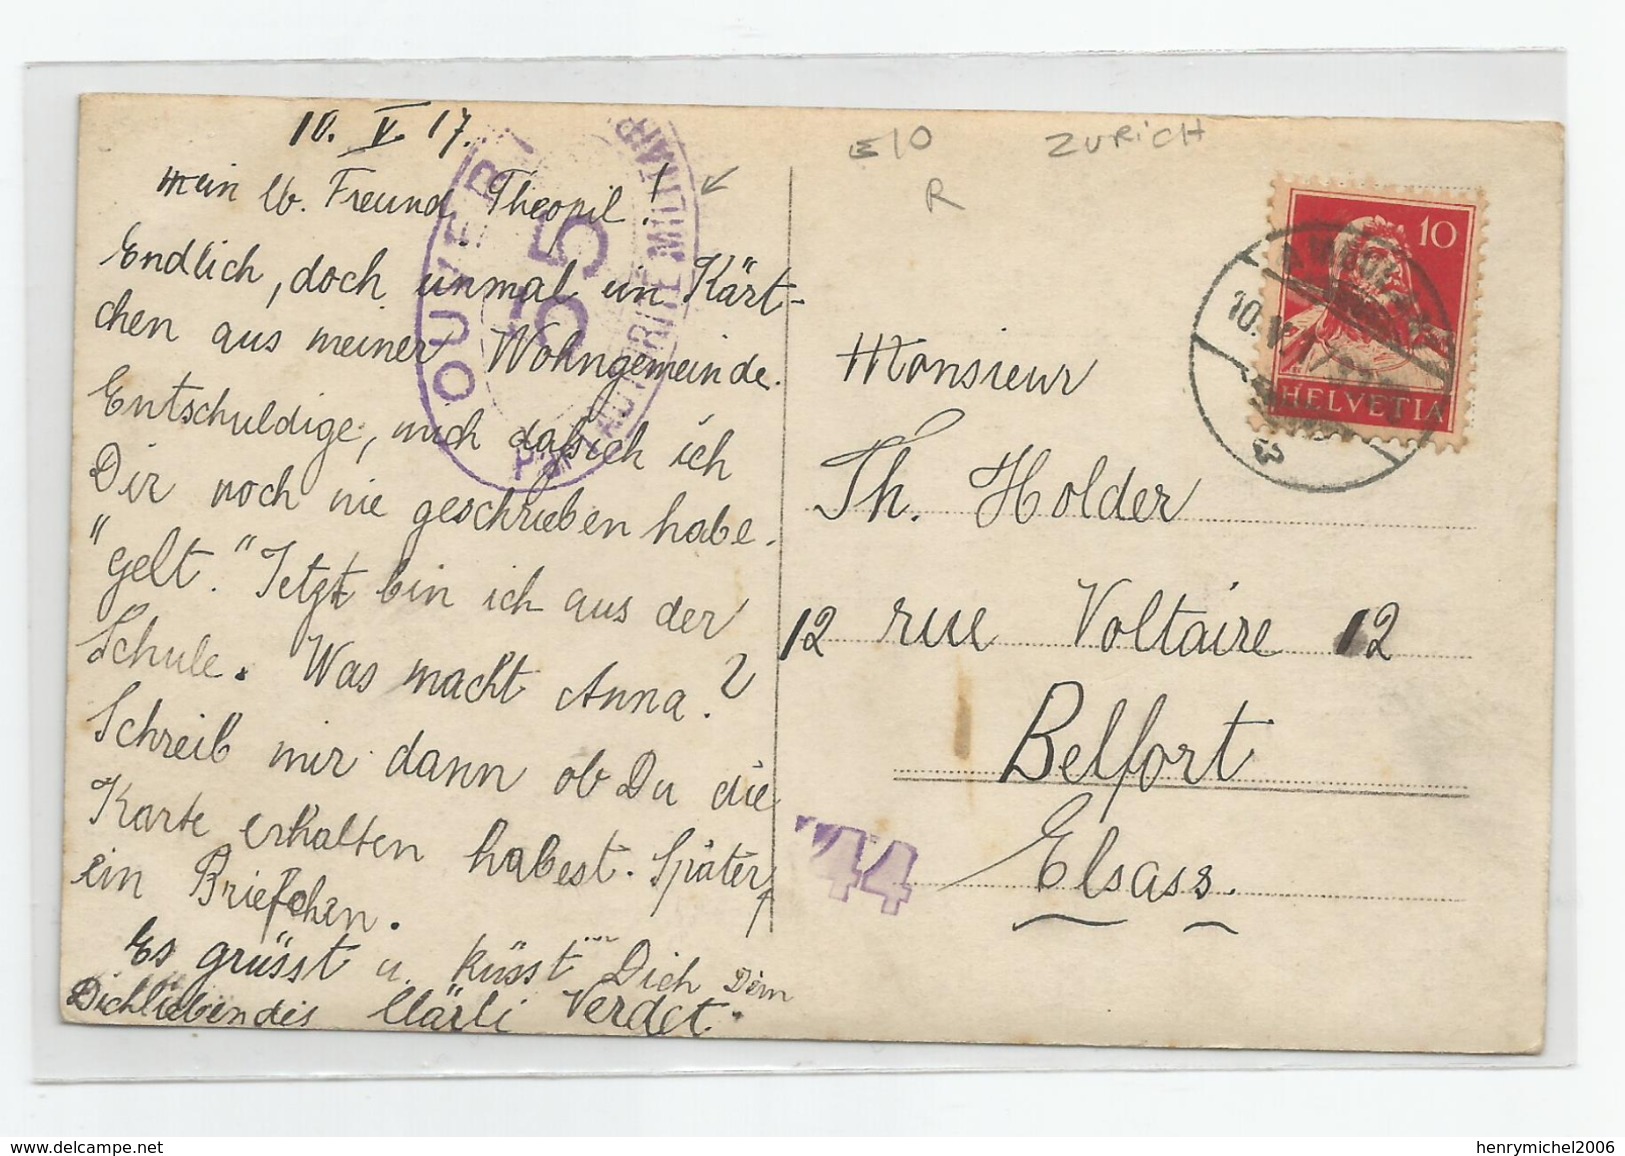 10. V. 17.
mein lb. Freund Theopil!
Endlich, doch einmal ein Kärt-
chen aus meiner Wohngemeinde.
Entschuldige, mich dass ich
Dir noch nie geschrieben habe.
"gelt." Jetzt bin ich aus der
Schule. Was macht Anna?
Schreib mir dann ob Du die
Karte erhalten habest. Später
ein Briefchen.
Es grüsst u. küsst Dich Dein
Dichliebendes Clärli Verdet.
OUVERT
55
PAR AUTORITÉ MILITAIRE
E10
ZURICH
R
10
HELVETIA
10.V.17
Monsieur
Th. Holder
12 rue Voltaire 12
Belfort
Elsass.
44
www.delcampe.net
henrymichel2006